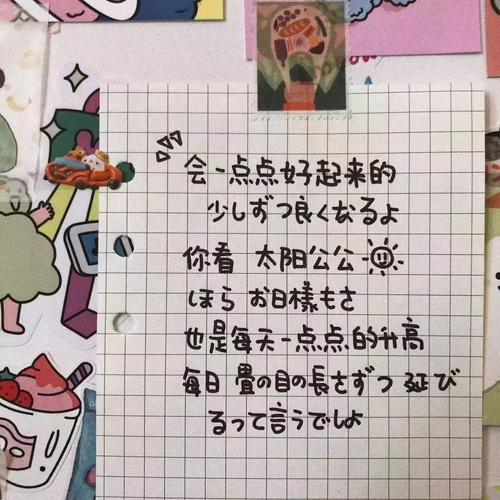 会一点点好起来的
少しずつ良くなるよ
你看 太阳公公
ほら お日様もさ
也是每天一点点的升高
毎日 畳の目の長さずつ 延び
るって言うでしよ